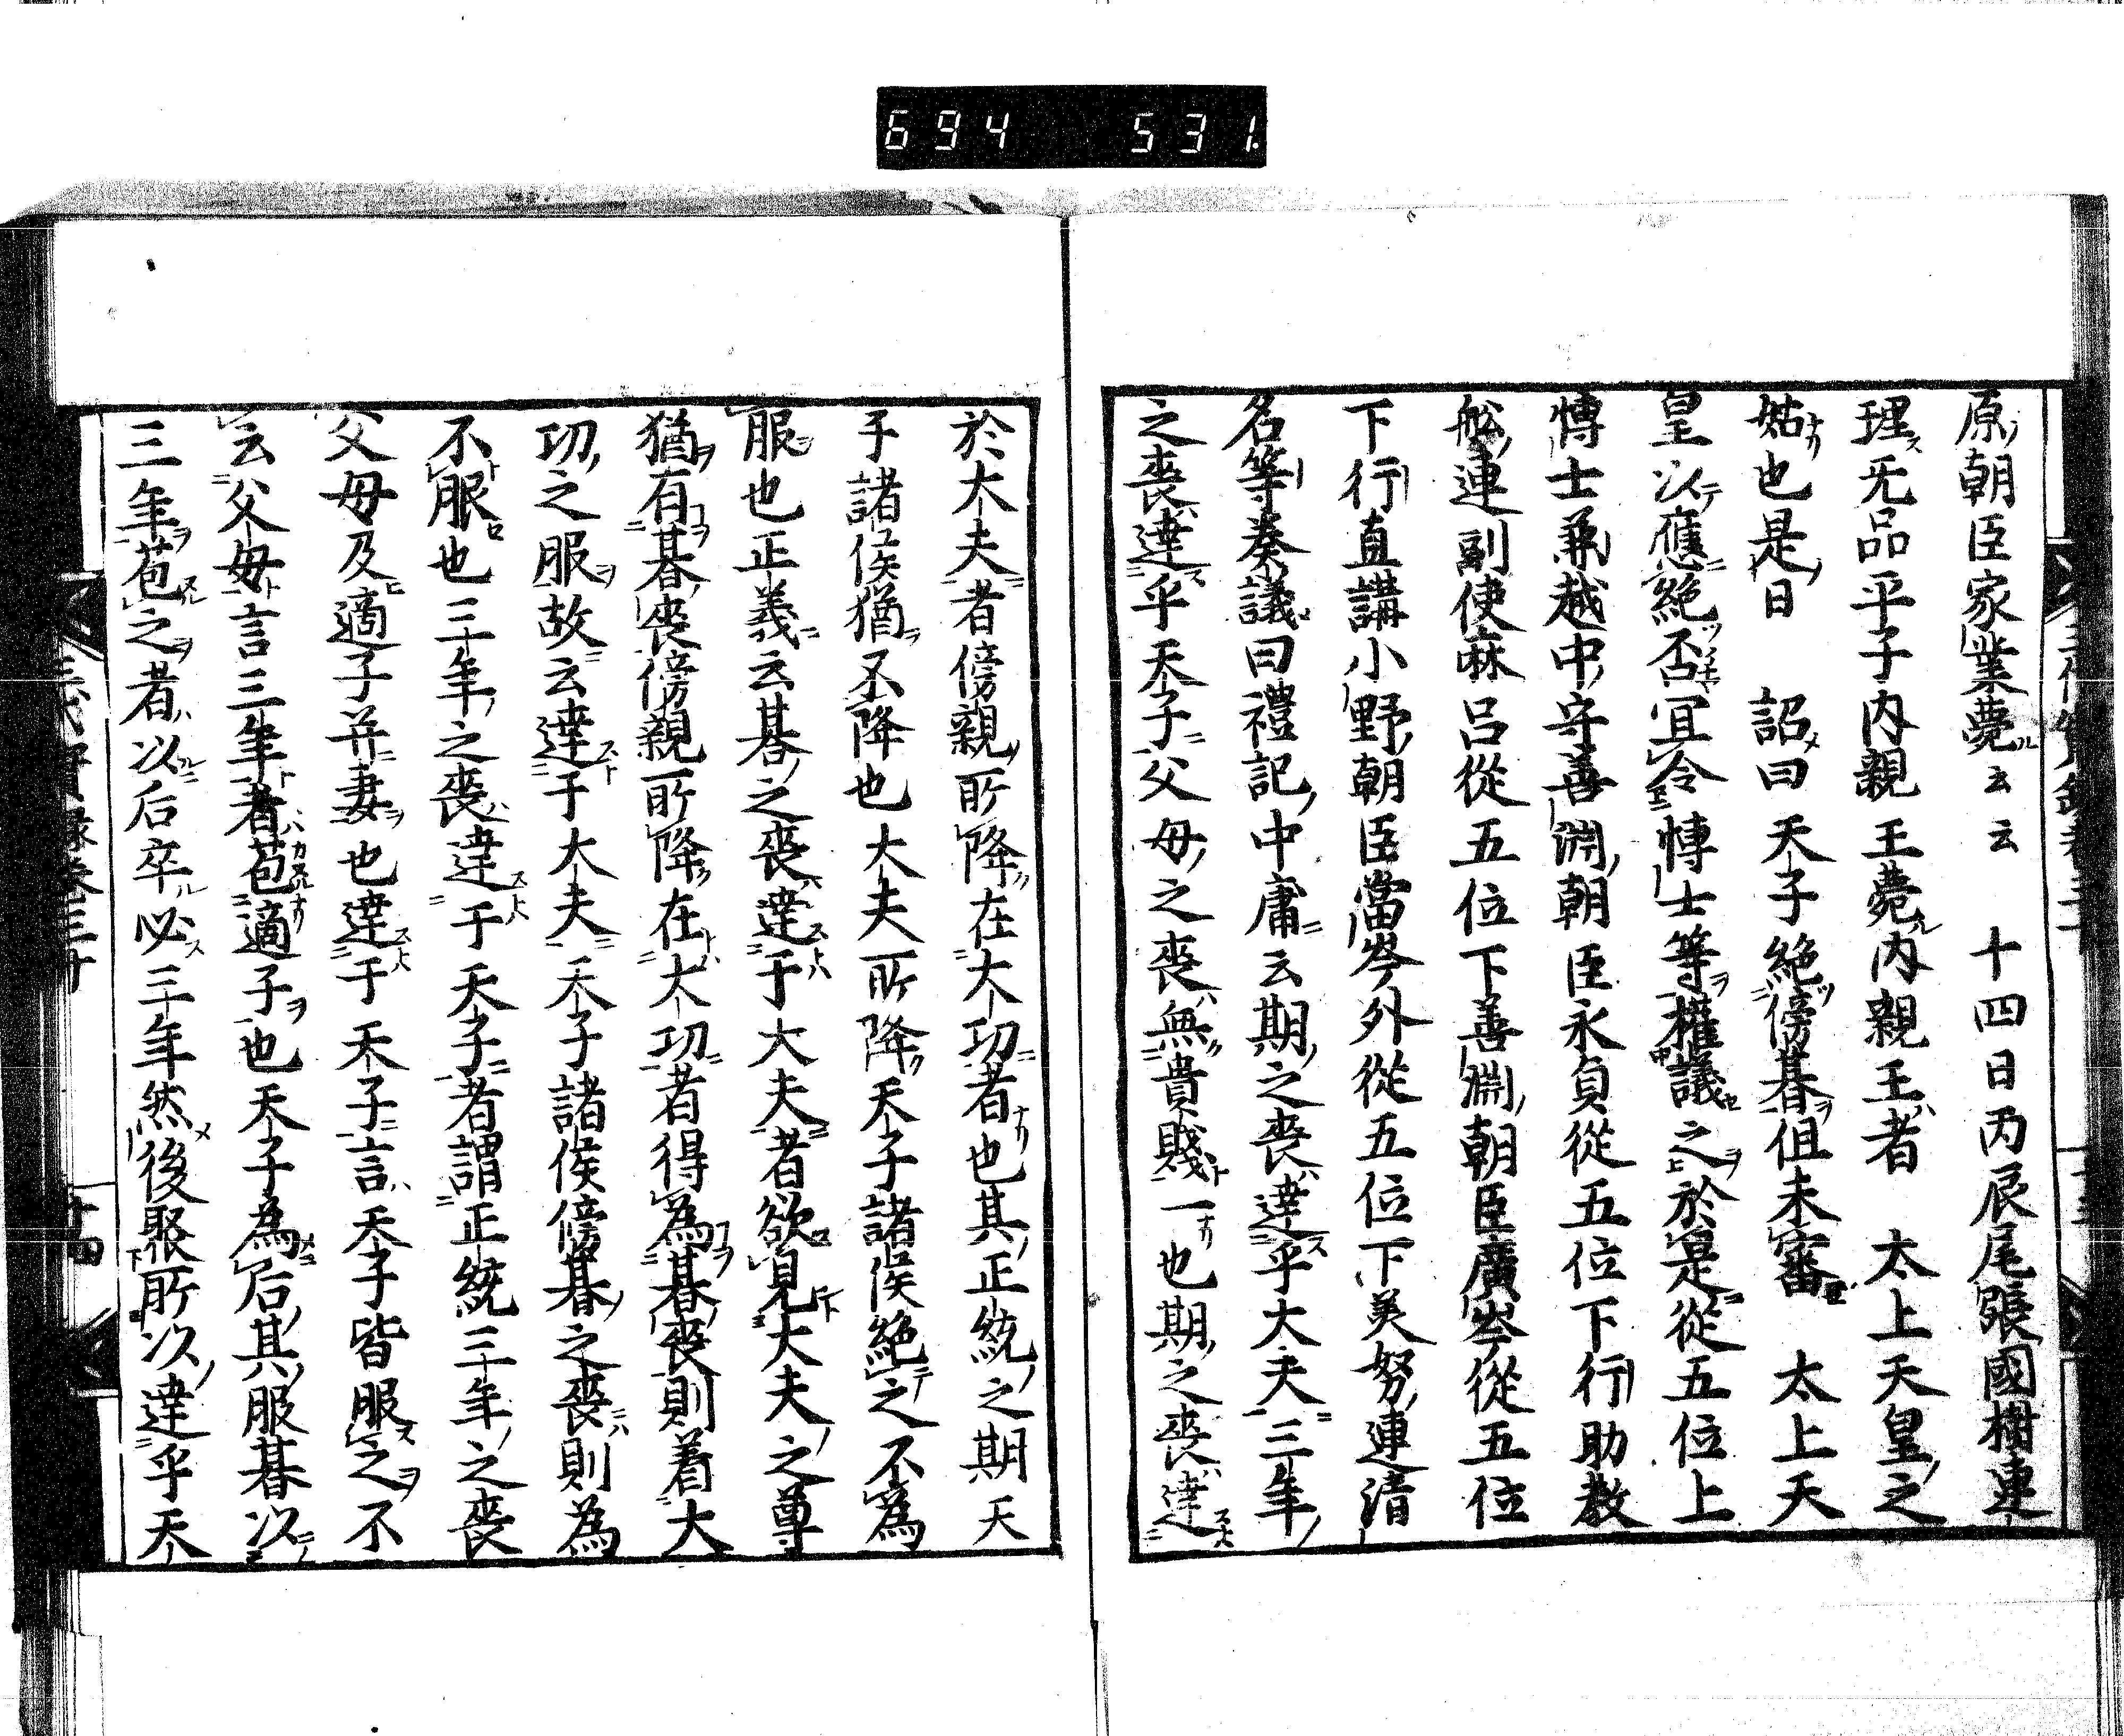 694 531.
原朝臣家業薨云云 十四日丙辰尾張國樹連
理无品平子內親王薨內親王者 太上天皇之
姑也是日 詔曰 天子絕傍朞但未審 太上天
皇以應絕否宜令博士等權議之於是從五位上
博士兼越中守善淵朝臣永貞從五位下行助教
舩連副使麻呂從五位下善淵朝臣廣岑從五位
下行直講小野朝臣當岑外從五位下美努連清
名等奏議曰禮記中庸云期之喪達乎大夫三年
之喪達乎天子父母之喪無貴賤一也期之喪達
於大夫者傍親所降在大功者也其正統之期天
子諸侯猶不降也大夫所降天子諸侯絕之不為
服也正義云朞之喪達于大夫者欲見大夫之尊
猶有朞喪傍親所降在大功者得為朞喪則着大
功之服故云達于大夫天子諸侯傍朞之喪則為
不服也三年之喪達于天子者謂正統三年之喪
父母及適子并妻也達于天子言天子皆服之不
云父母言三年者苞適子也天子為后其服朞以
三年苞之者以后卒必三年然後聚所以達乎天
三代實錄卷三十
十四